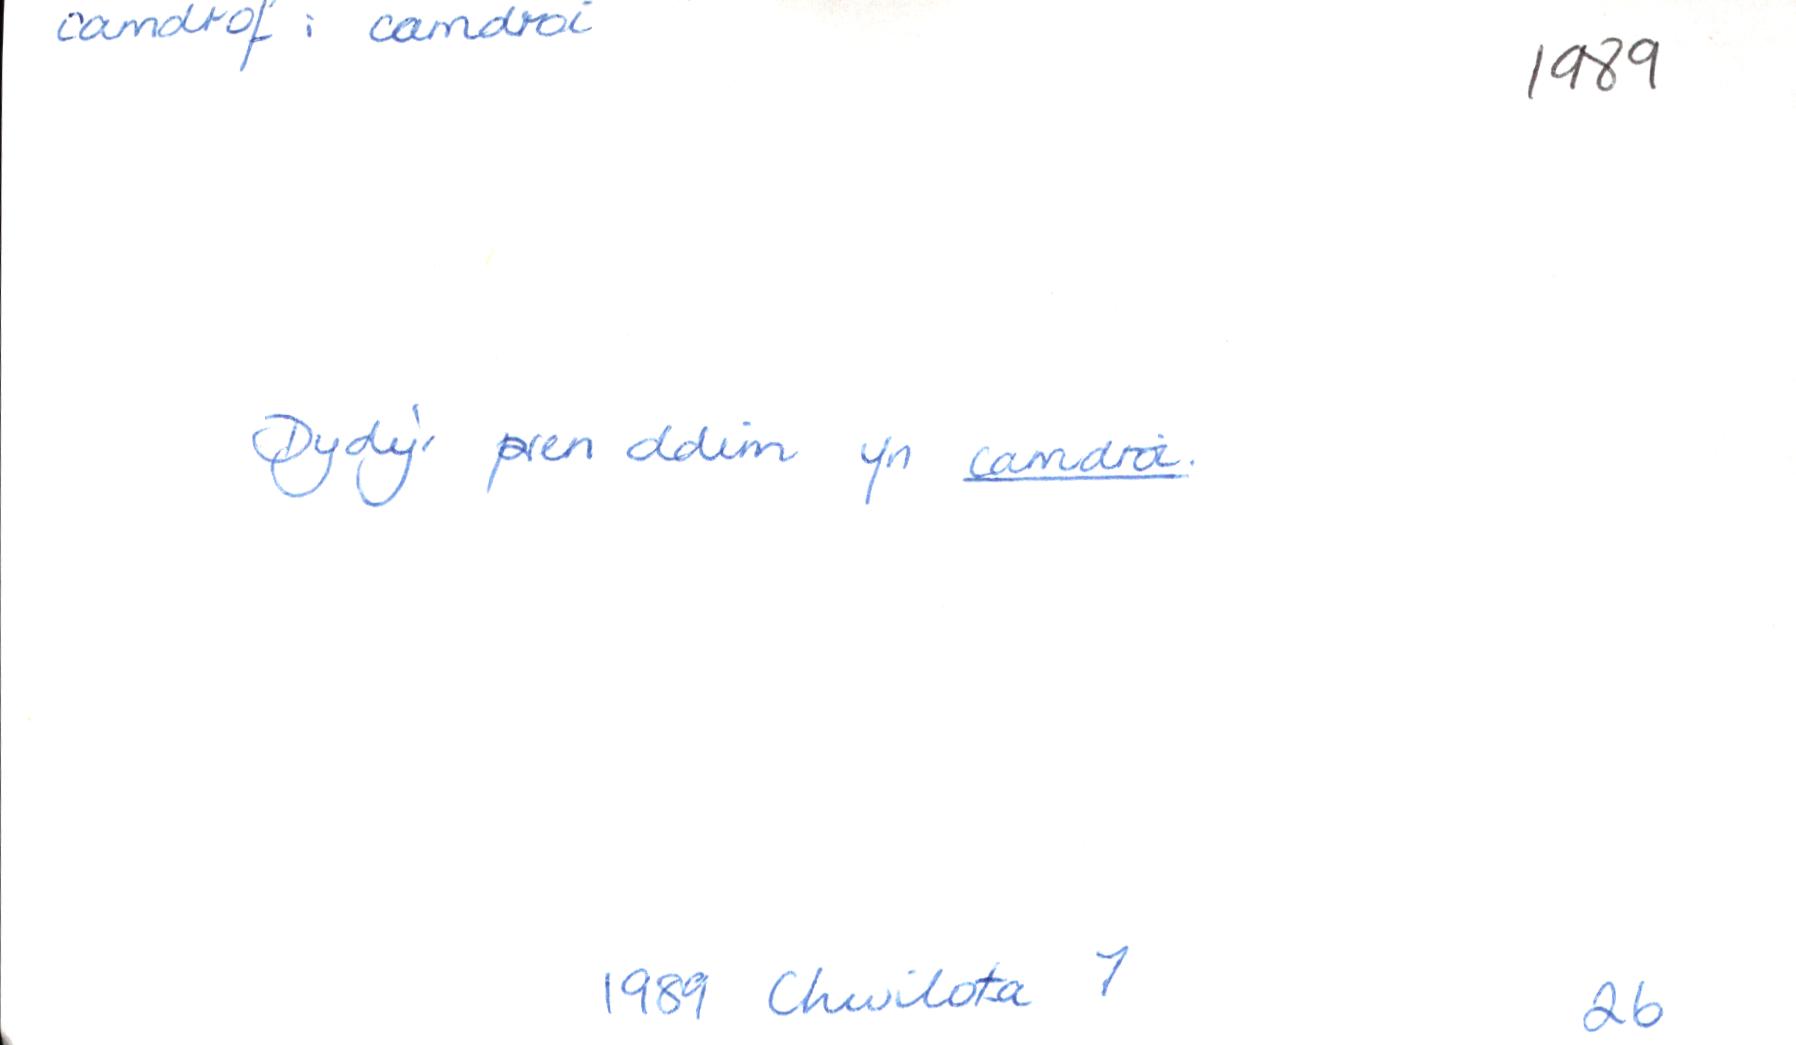 camdrof : camdroi
1989
Dydy'r pren ddim yn camdroi.
1989 Chwilota 7
26